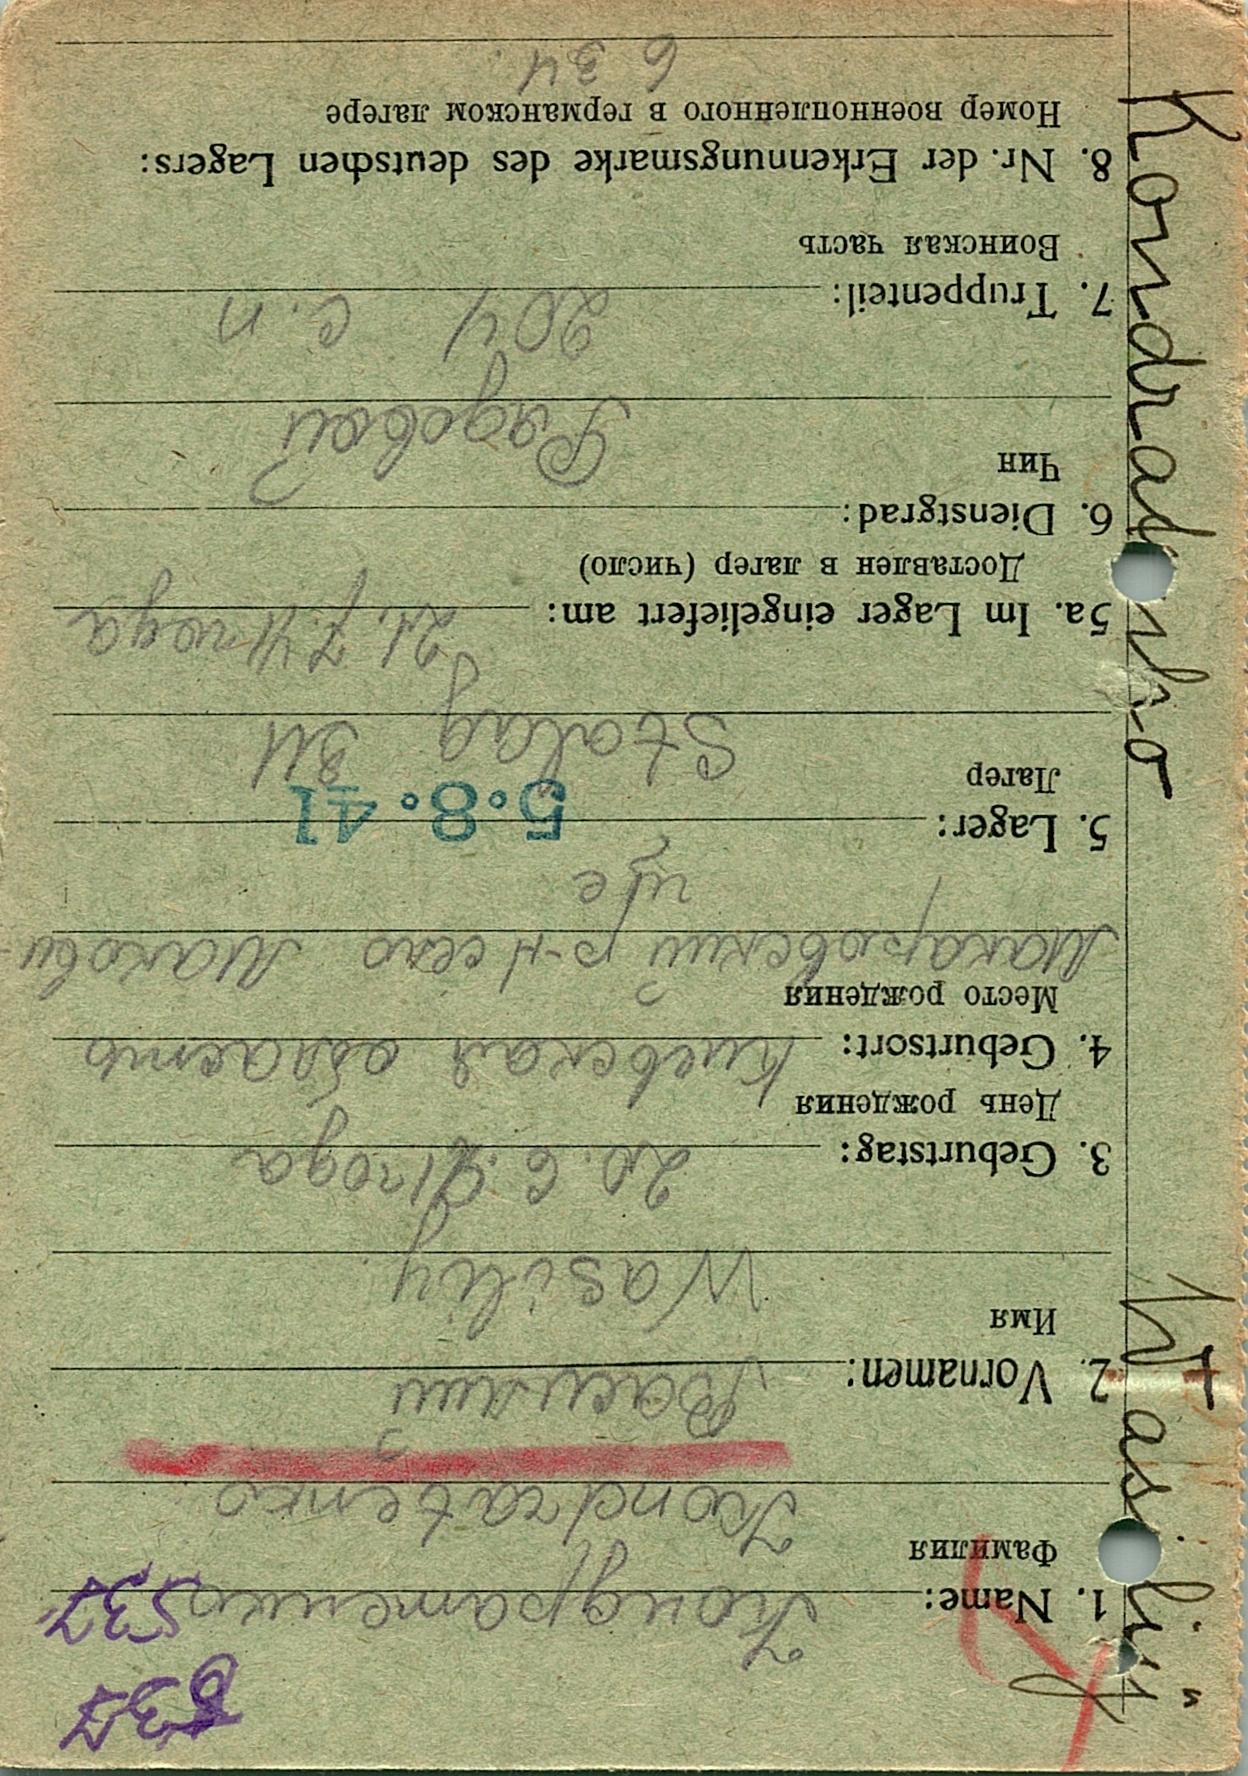 537
1. Name: Кондратенко 537
Фамилия
Kondratenko
2. Vornamen: Василий
Имя
Wasiliy
3. Geburtstag: 20. 6. года
День рождения
4. Geburtsort: Киевская область
Место рождения
Макаровский р-н село Макови-
ще
5. Lager: 5.8.41
Лагер
Stalag
5a. Im Lager eingeliefert am: 21.7.41 года
Доставлен в лагер (число)
6. Dienstgrad:
Чин
Рядовой
7. Truppenteil: 204 с.п
Воинская часть
8. Nr. der Erkennungsmarke des deutschen Lagers:
Номер военнопленного в германском лагере
634.
Wasilij